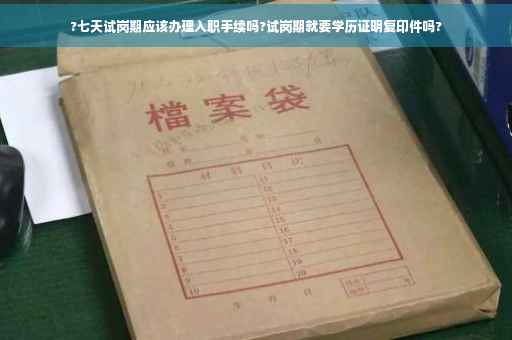 ?七天试岗期应该办理入职手续吗?试岗期就要学历证明复印件吗?
檔案袋
材料目次
1 11
2 12
3 13
4 14
5 15
6 16
7 17
8 18
9 19
10 20
年 月 日